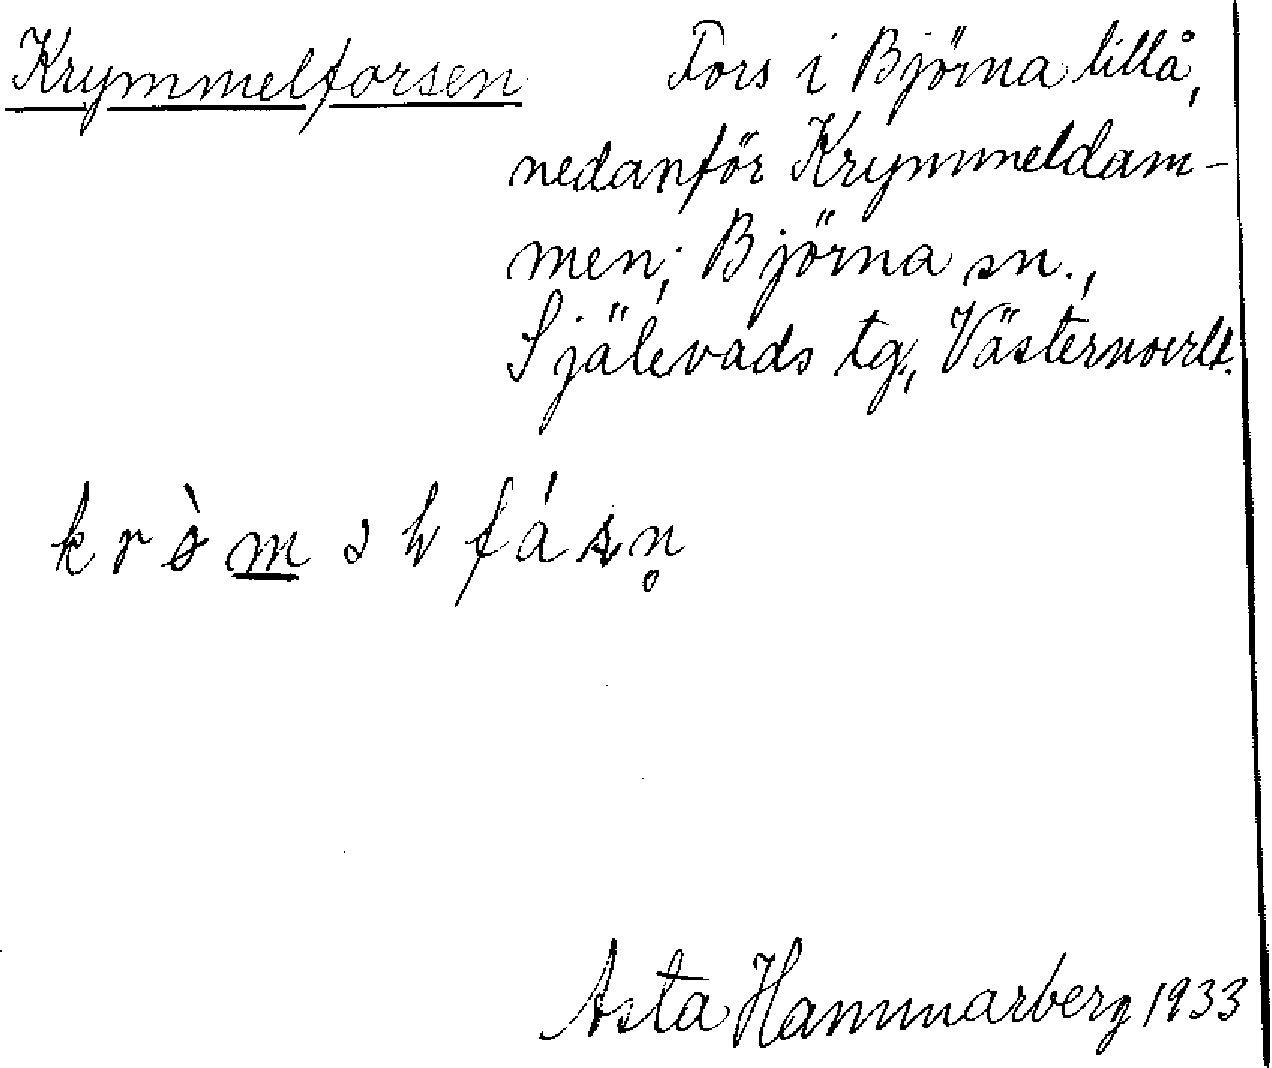 Krymmelforsen Fors i Björna lillå,
nedanför Krymmeldam-
men; Björna sn.,
Själevads tg., Västernorrl.
Asta Hammarberg 1933